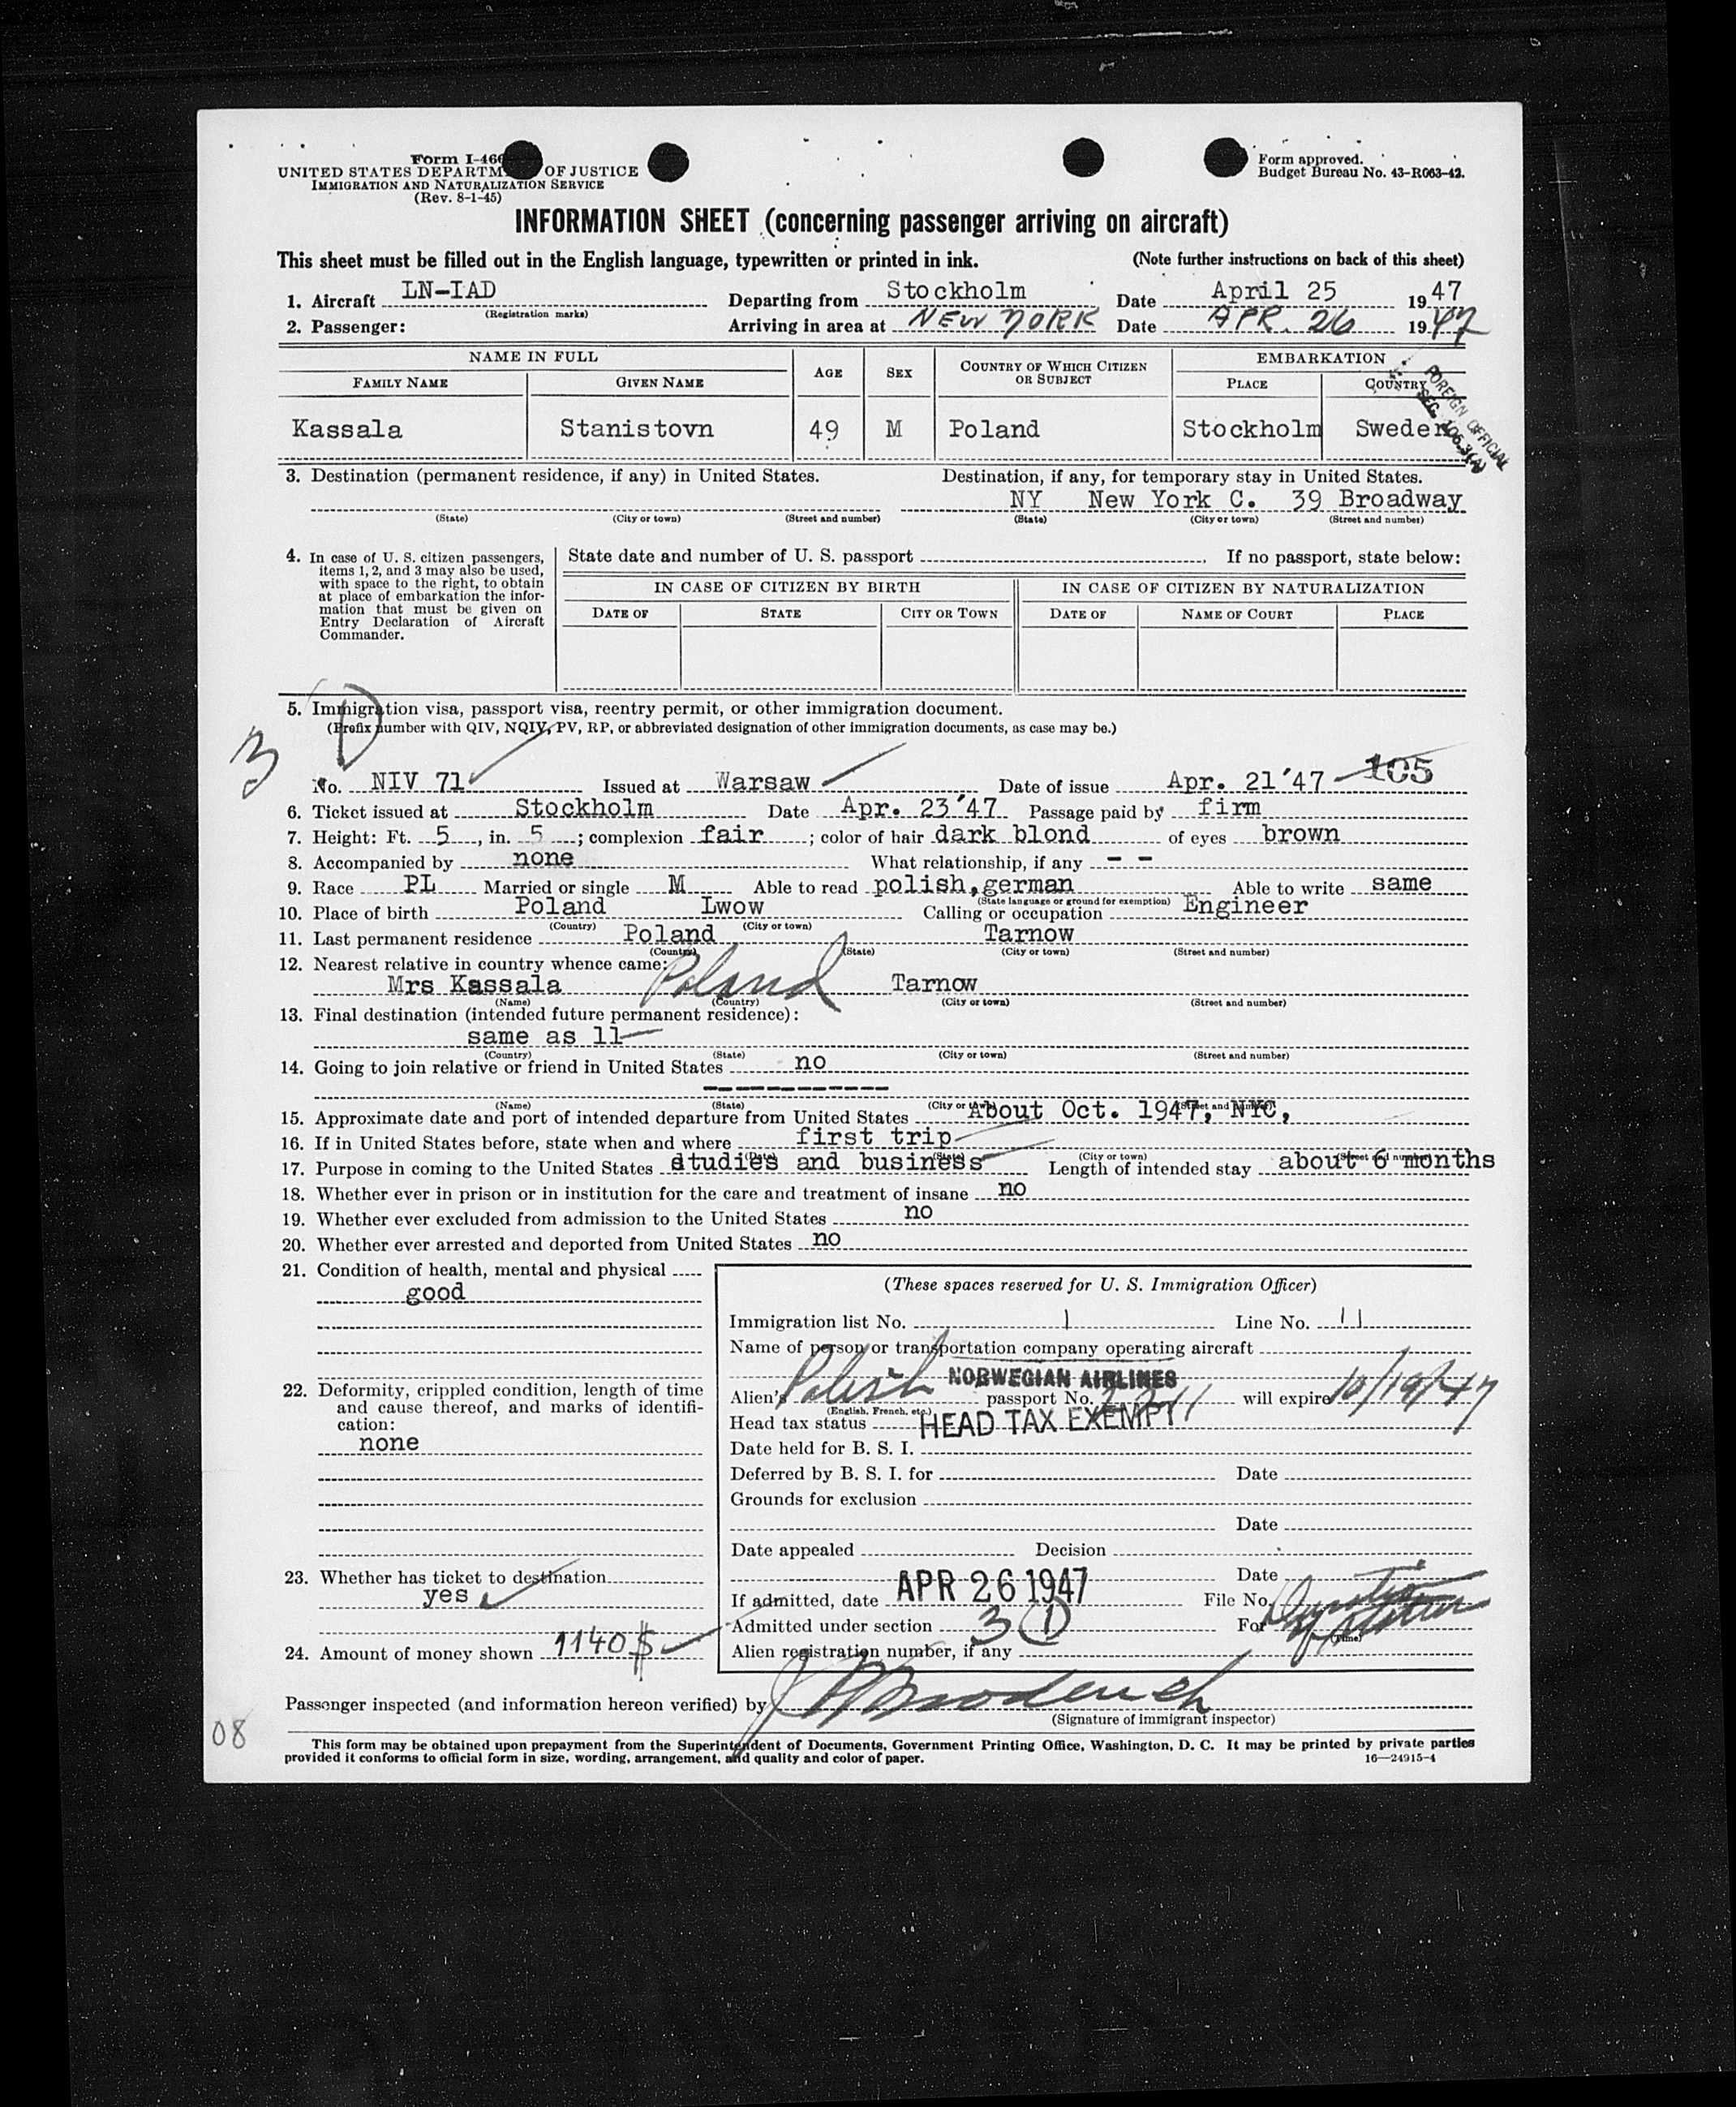 Form I-46
UNITED STATES DEPARTM OF JUSTICE
IMMIGRATION AND NATURALIZATION SERVICE
(Rev. 8-1-45)
Form approved.
Budget Bureau No. 43-R063-42.
INFORMATION SHEET (concerning passenger arriving on aircraft)
This sheet must be filled out in the English language, typewritten or printed in ink. (Note further instructions on back of this sheet)
1. Aircraft LN-IAD Departing from Stockholm Date April 25 1947
(Registration marks)
2. Passenger: Arriving in area at NEW YORK Date APR. 26 1947
NAME IN FULL AGE SEX COUNTRY OF WHICH CITIZEN OR SUBJECT EMBARKATION
FAMILY NAME GIVEN NAME PLACE COUNTRY
FOREIGN OFFICIAL
SEC. 105.3(A)
Kassala Stanistovn 49 M Poland Stockholm Sweden
3. Destination (permanent residence, if any) in United States. Destination, if any, for temporary stay in United States.
NY New York C. 39 Broadway
(State) (City or town) (Street and number) (State) (City or town) (Street and number)
4. In case of U. S. citizen passengers, items 1, 2, and 3 may also be used, with space to the right, to obtain at place of embarkation the information that must be given on Entry Declaration of Aircraft Commander.
State date and number of U. S. passport If no passport, state below:
IN CASE OF CITIZEN BY BIRTH IN CASE OF CITIZEN BY NATURALIZATION
DATE OF STATE CITY OR TOWN DATE OF NAME OF COURT PLACE
5. Immigration visa, passport visa, reentry permit, or other immigration document.
(Prefix number with QIV, NQIV, PV, RP, or abbreviated designation of other immigration documents, as case may be.)
3
No. NIV 71 Issued at Warsaw Date of issue Apr. 21'47 105
6. Ticket issued at Stockholm Date Apr. 23'47 Passage paid by firm
7. Height: Ft. 5, in. 5; complexion fair; color of hair dark blond of eyes brown
8. Accompanied by none What relationship, if any - -
9. Race PL Married or single M Able to read polish,german Able to write same
(State language or ground for exemption)
10. Place of birth Poland Lwow Calling or occupation Engineer
(Country) (City or town)
11. Last permanent residence Poland Tarnow
(Country) (State) (City or town) (Street and number)
12. Nearest relative in country whence came:
Mrs Kassala Poland Tarnow
(Name) (Country) (City or town) (Street and number)
13. Final destination (intended future permanent residence):
same as 11
(Country) (State) (City or town) (Street and number)
14. Going to join relative or friend in United States no
------------
(Name) (State) (City or town) (Street and number)
15. Approximate date and port of intended departure from United States About Oct. 1947, NYC,
16. If in United States before, state when and where first trip
(Date) (State) (City or town) (Street and number)
17. Purpose in coming to the United States studies and business Length of intended stay about 6 months
18. Whether ever in prison or in institution for the care and treatment of insane no
19. Whether ever excluded from admission to the United States no
20. Whether ever arrested and deported from United States no
21. Condition of health, mental and physical
good
22. Deformity, crippled condition, length of time and cause thereof, and marks of identification:
none
23. Whether has ticket to destination
yes
24. Amount of money shown 1140 $
(These spaces reserved for U. S. Immigration Officer)
Immigration list No. 1 Line No. 11
Name of person or transportation company operating aircraft
NORWEGIAN AIRLINES
Alien's Polish passport No. will expire 10/19/47
(English, French, etc.)
Head tax status HEAD TAX EXEMPT
Date held for B. S. I.
Deferred by B. S. I. for Date
Grounds for exclusion
Date
Date appealed Decision
Date
If admitted, date APR 26 1947 File No.
Admitted under section 3 (1) For
(Time)
Alien registration number, if any
Passenger inspected (and information hereon verified) by
(Signature of immigrant inspector)
08
This form may be obtained upon prepayment from the Superintendent of Documents, Government Printing Office, Washington, D. C. It may be printed by private parties
provided it conforms to official form in size, wording, arrangement, and quality and color of paper.
16—24915-4